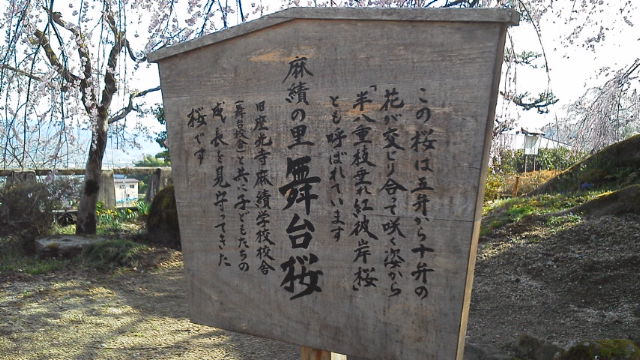 この桜は五弁から十弁の
花が交じり合て咲く姿から
「半八重枝垂れ紅彼岸桜」
とも呼ばれています
麻績の里 舞台桜
旧座光寺麻績学校校舎
(舞台校舎)と共に子どもたちの
成長を見守ってきた
桜です